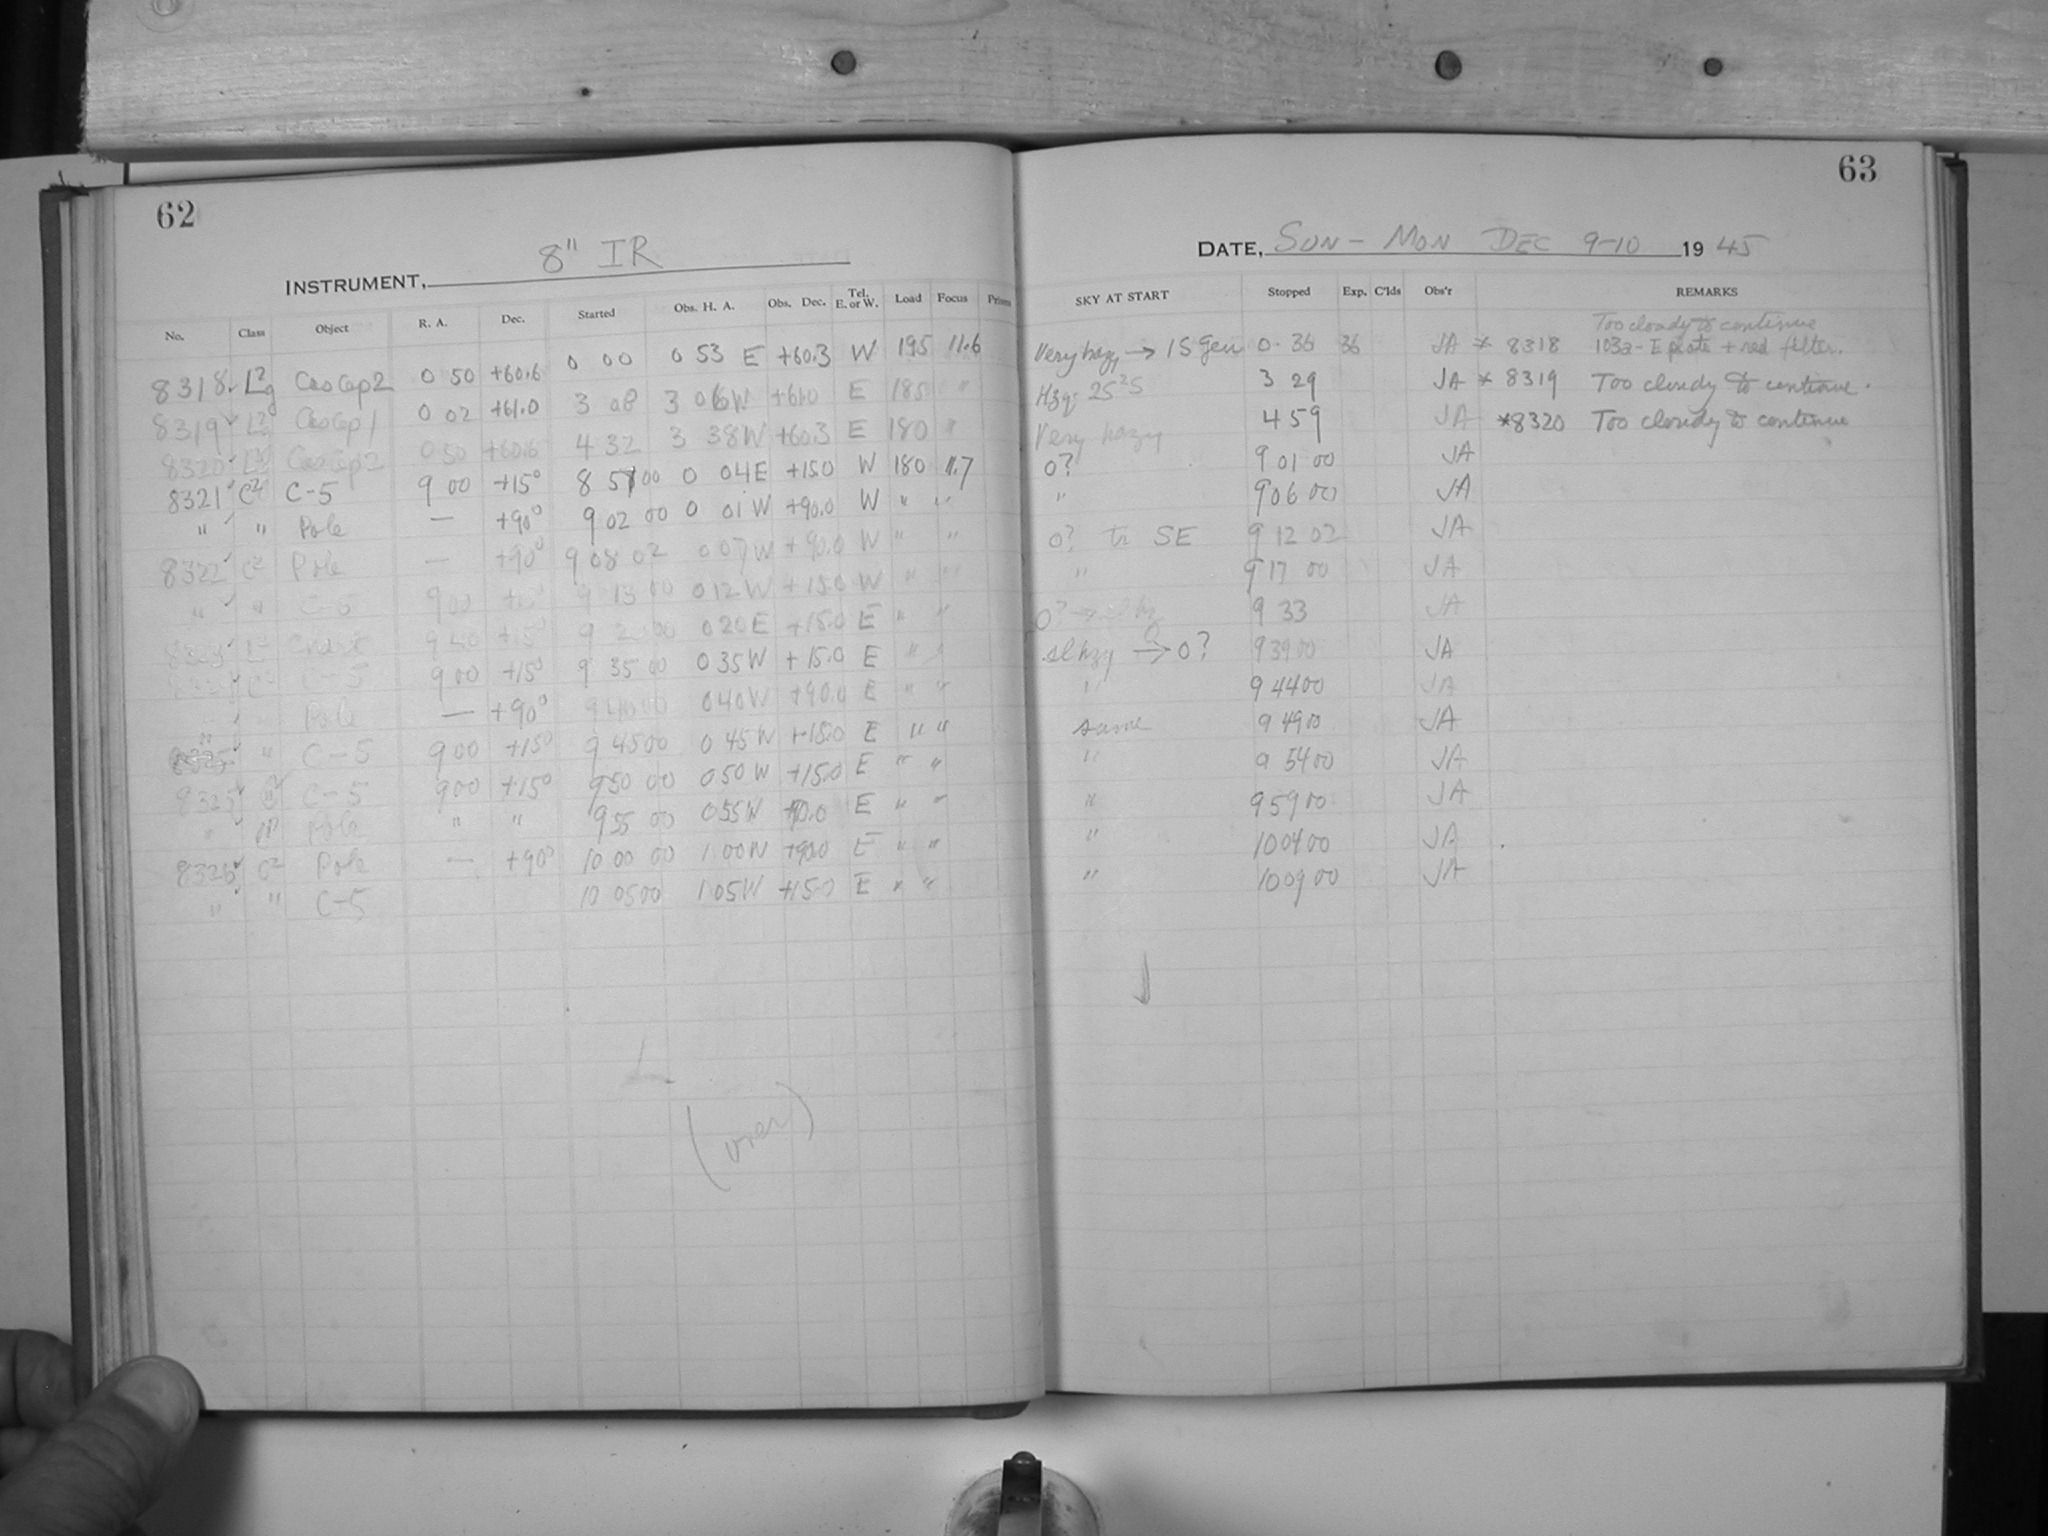 62
8" IR
INSTRUMENT,
No. Class Object R. A. Dec. Started Obs. H. A. Obs. Dec. Tel. E. or W. Load Focus Prism
8318 CasCep2 0 50 +60.6 0 00 0 53 E +60.3 W 195 11.6
8319 CasCep1 0 02 +61.0 3 08 3 06W +61.0 E 185 "
8320 CasCep2 0 50 +60.6 4 32 3 38W +60.3 E 180 "
8321 C2 C-5 9 00 +15° 8 57 00 0 04E +15.0 W 180 11.7
" " Pole — +90° 9 02 00 0 01W +90.0 W " "
8322 C2 Pole — +90° 9 08 02 0 07W +90.0 W " "
" " C-5 9 00 +15° 9 13 00 0 12W +15.0 W " "
+15° 0 20E +15.0 E " "
C-5 9 00 +15° 9 35 00 0 35W +15.0 E " "
" Pole — +90° 9 40 00 0 40W +90.0 E " "
" C-5 9 00 +15° 9 45 00 0 45W +15.0 E " "
8325 C-5 9 00 +15° 9 50 00 0 50W +15.0 E " "
" Pole " " 9 55 00 0 55W +90.0 E " "
8326 C2 Pole — +90° 10 00 00 1 00W +90.0 E " "
" " C-5 10 05 00 1 05W +15.0 E " "
(over)
63
DATE, SUN - MON DEC 9-10 1945
SKY AT START Stopped Exp. C'lds Obs'r REMARKS
Too cloudy to continue
Very hazy → 0 36 36 JA * 8318 103a-E plate + red filter.
3 29 JA * 8319 Too cloudy to continue.
Very hazy 4 59 JA *8320 Too cloudy to continue
0? 9 01 00 JA
" 9 06 00 JA
0? in SE 9 12 02 JA
" 9 17 00 JA
0? → 9 33 JA
sl hzy → 0? 9 39 00 JA
" 9 44 00 JA
same 9 49 00 JA
" 9 54 00 JA
" 9 59 00 JA
" 10 04 00 JA
" 10 09 00 JA